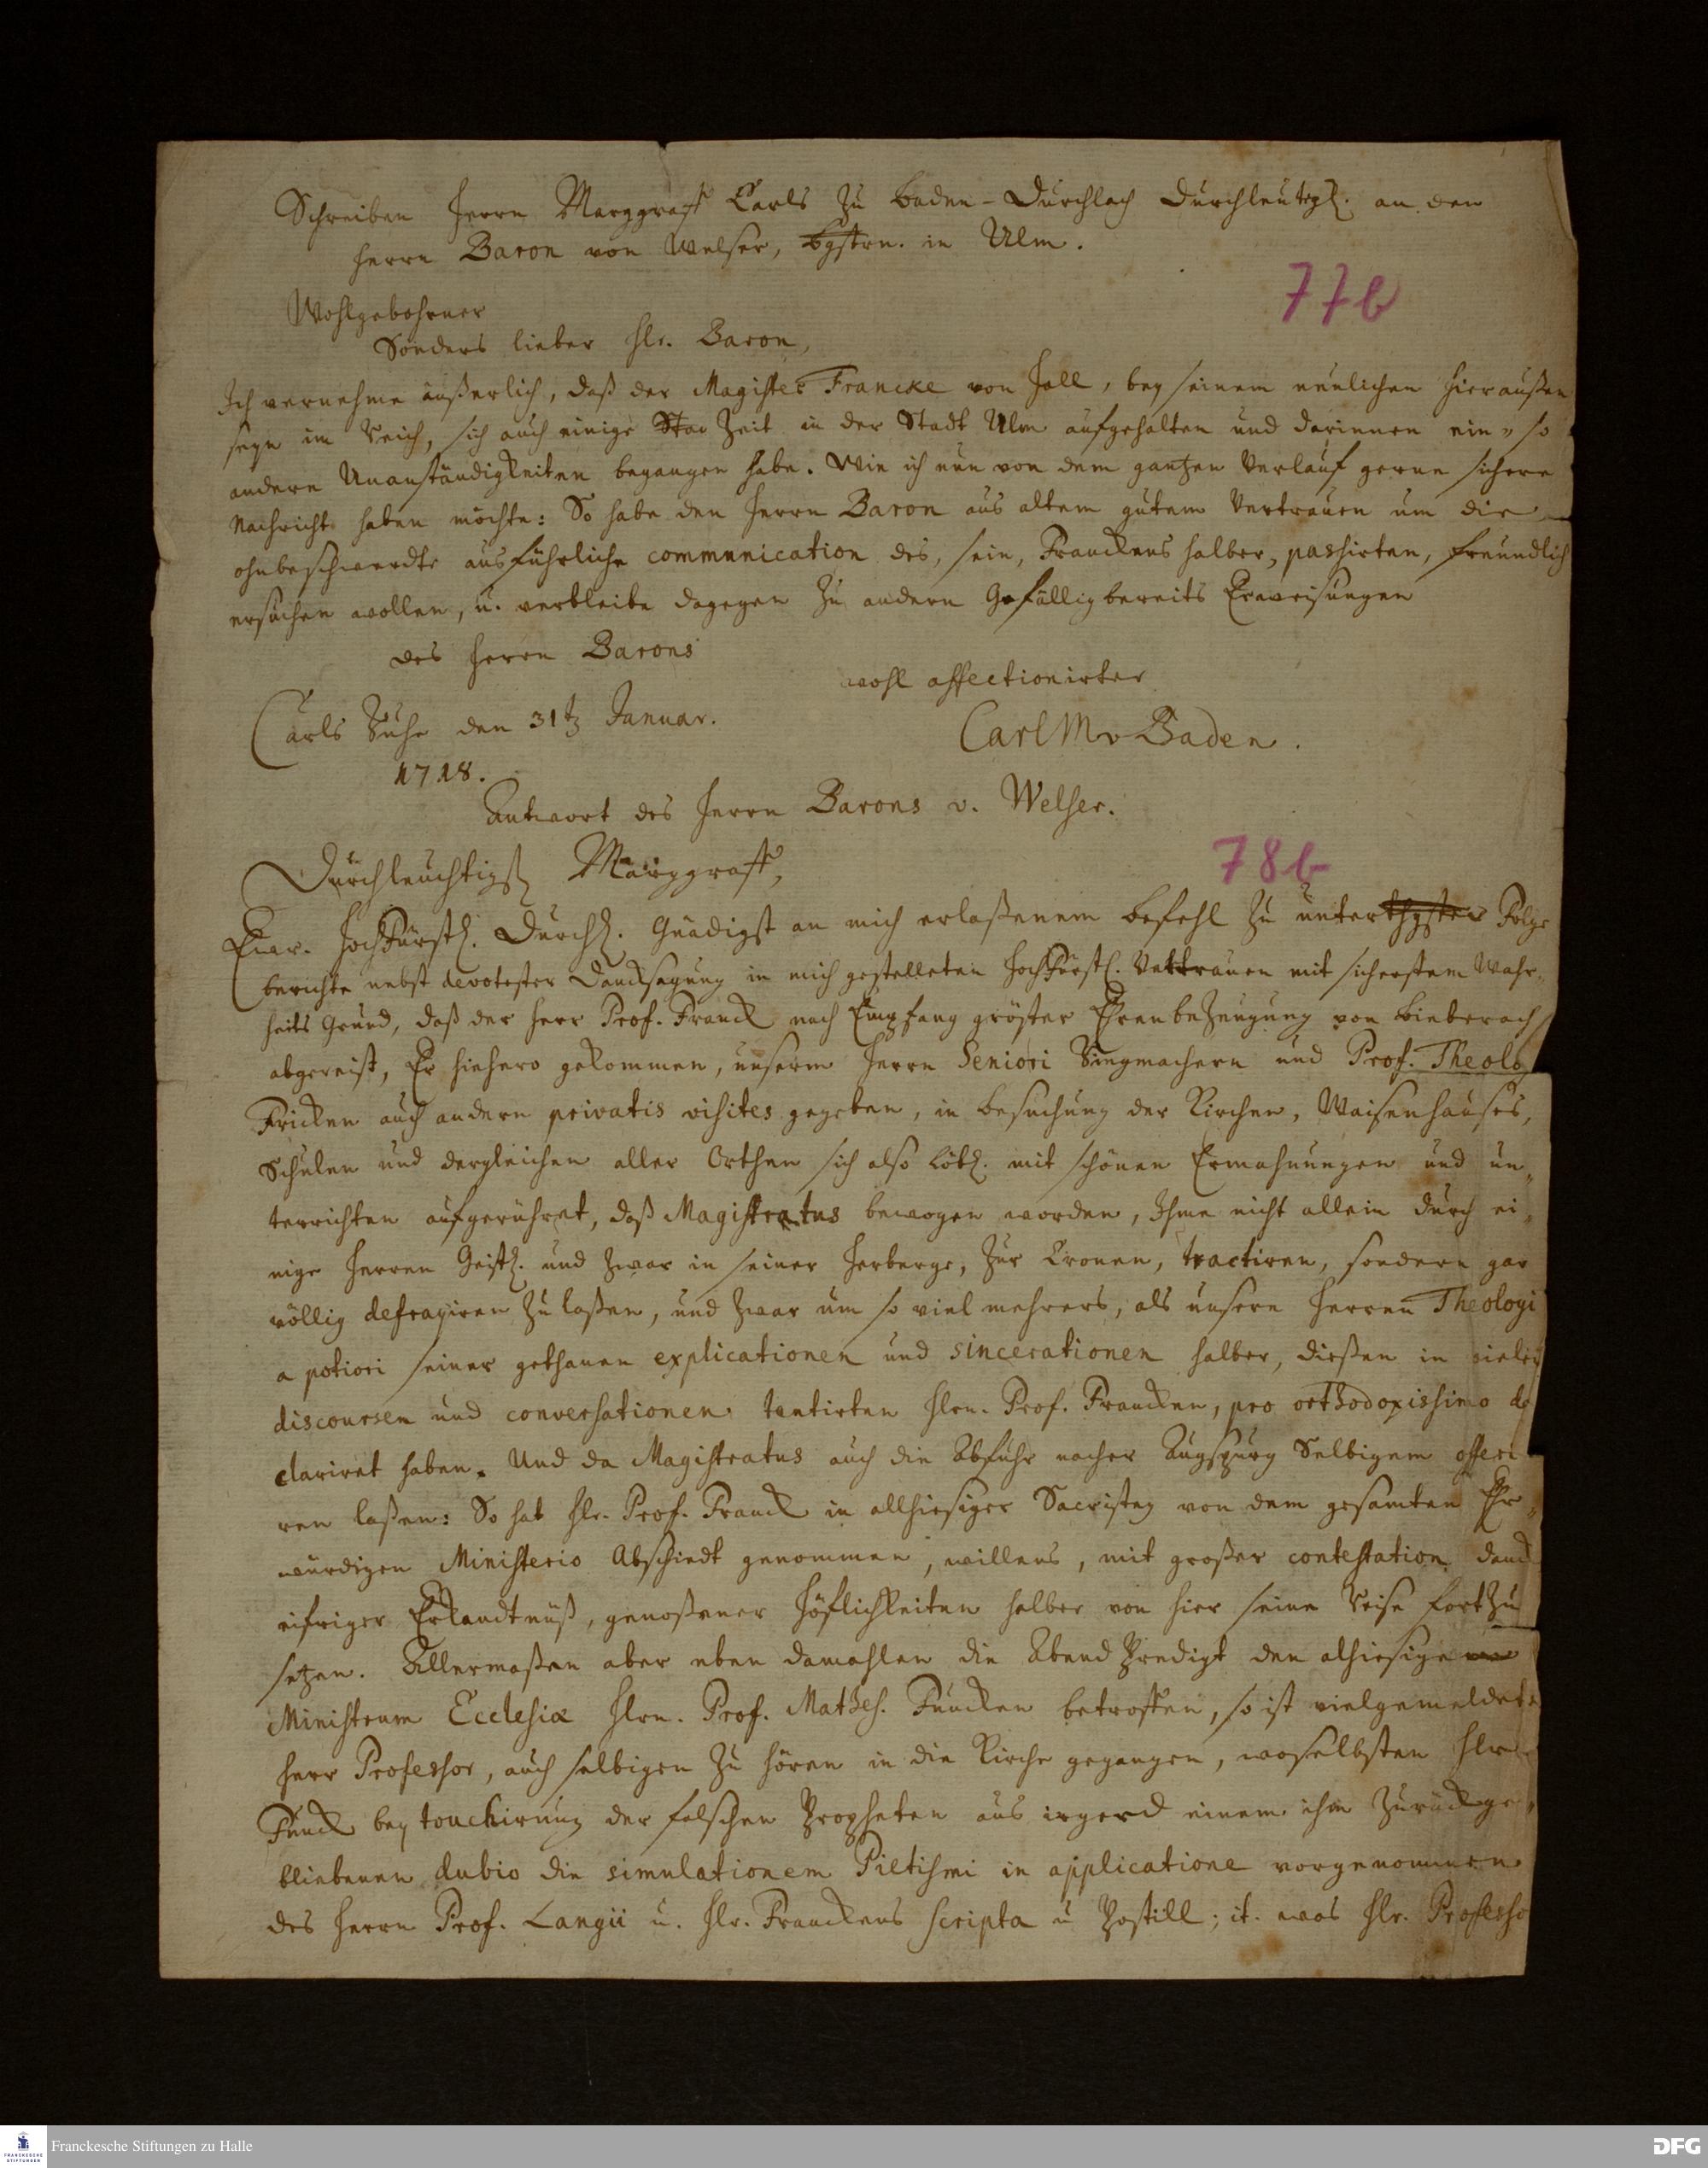 Schreiben Herrn Marggraff Carls zu Baden-Durchlach Durchleuchtigk. an den
Herrn Baron von Welser, in Ulm.
77b
Wohlgebohrner
Sonders lieber Hr. Baron,
Ich vernehme äußerlich, daß der Magister Francke von Hall, bey seinem neulichen hieraußen
seyn im Reich, sich auch einige Zeit in der Stadt Ulm aufgehalten und darinnen ein- so
andere Unanständigkeiten begangen habe. Wie ich nun von dem gantzen Verlauf gerne sichere
Nachricht haben möchte: So habe den Herrn Baron aus altem gutem Vertrauen um die
ohnbeschwerdte ausführliche communication des, sein, Franckens halber, passirten, freundlich
ersuchen wollen, u. verbleibe dagegen zu andern Gefällig bereits Erweisungen
des Herrn Barons
wohl affectionirter
Carls Ruhe den 31t Januar.
Carl M v Baden.
1718.
Antwort des Herrn Barons v. Welser.
78b
Durchleuchtigst Marggraff,
Euer. Hochfürstl. Durchl. Gnädigst an mich erlaßenem Befehl zu Folge
berichte nebst devotester Dancksagung in mich gestelleten Hochfürstl. Vertrauen mit sicherstem Wahr-
heits Grund, daß der Herr Prof. Franck nach Empfang gröster Ehrenbezeugung von Bieberach
abgereist, Er hiehero gekommen, unserm Herrn Seniori Ringmachern und Prof. Theolo
Fricken auch andern privatis visites gegeben, in Besuchung der Kirchen, Waisenhauses,
Schulen und dergleichen aller Orthen sich also löbl. mit schönen Ermahnungen und un-
terrichten aufgeführet, daß Magistratus bewogen worden, Ihme nicht allein durch ei-
nige Herren Geistl. und zwar in seiner Herberge, zur Cronen, tractiren, sondern gar
völlig defrayiren zu laßen, und zwar um so viel mehrers, als unsere Herren Theologi
a potiori seiner gethanen explicationen und sincerationen halber, dießen in vieler
discoursen und conversationen tentirten Hrn. Prof. Francken, pro orthodoxissimo de
clariret haben. Und da Magistratus auch die Abfuhr nacher Augspurg Selbigem offeri
ren laßen: So hat Hr. Prof. Franck in allhiesiger Sacristey von dem gesamten Ehr-
würdigen Ministerio Abschiedt genommen, willens, mit großer contestation danck
eifriger Erkandtnüß, genoßener Höflichkeiten halber von hier seine Reise fortzu
setzen. Allermaßen aber eben damahlen die Abend Predigt den alhiesige
Ministrum Ecclesiæ Hrn. Prof. Mathes. Funcken betroffen, so ist vielgemeldete
Herr Professor, auch selbigen zu hören in die Kirche gegangen, woselbsten Hr
Funck bey touchirung der falschen Propheten aus irgend einem ihm zurückge-
bliebenen dubio die simulationem Pietismi in applicatione vorgenommen
des Herrn Prof. Langii u. Hr. Franckens scripta u Postill; it. was Hr. Professo
Franckesche Stiftungen zu Halle
FRANCKESCHE STIFTUNGEN
DFG